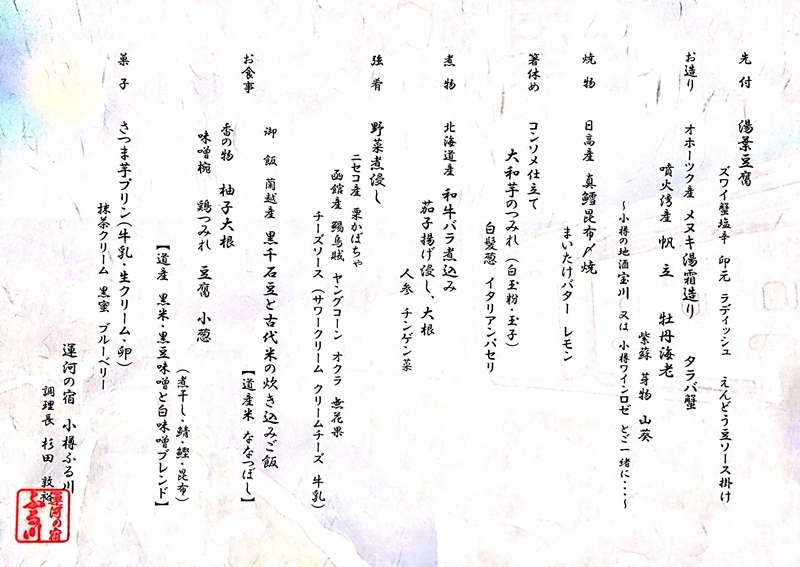 先付　湯葉豆腐
ズワイ蟹塩辛　卵元　ラディッシュ　えんどう豆ソース掛け
お造り　オホーツク産　メヌキ湯霜造り　タラバ蟹
噴火湾産　帆立　牡丹海老
紫蘇　芽物　山葵
～小樽の地酒宝川　又は　小樽ワインロゼ　とご一緒に・・・・～
焼物　日高産　真鱈昆布〆焼
まいたけバター　レモン
箸休め　コンソメ仕立て
大和芋のつみれ（白玉粉・玉子）
白髪葱　イタリアンパセリ
煮物　北海道産　和牛バラ煮込み
茄子揚げ浸し、大根
人参　チンゲン菜
強肴　野菜煮浸し
ニセコ産　栗かぼちゃ
函館産　鯣烏賊　ヤングコーン　オクラ　無花果
チーズソース（サワークリーム　クリームチーズ　牛乳）
お食事　御飯　蘭越産　黒千石豆と古代米の炊き込みご飯
【道産米　ななつぼし】
香の物　柚子大根
味噌椀　鶏つみれ　豆腐　小葱
（煮干し・鯖・鰹・昆布）
【道産　黒米・黒豆味噌と白味噌ブレンド】
菓子　さつま芋プリン（牛乳・生クリーム・卵）
抹茶クリーム　黒蜜　ブルーベリー
運河の宿　小樽ふる川
調理長　杉田　敦裕
運河の宿
ふる川